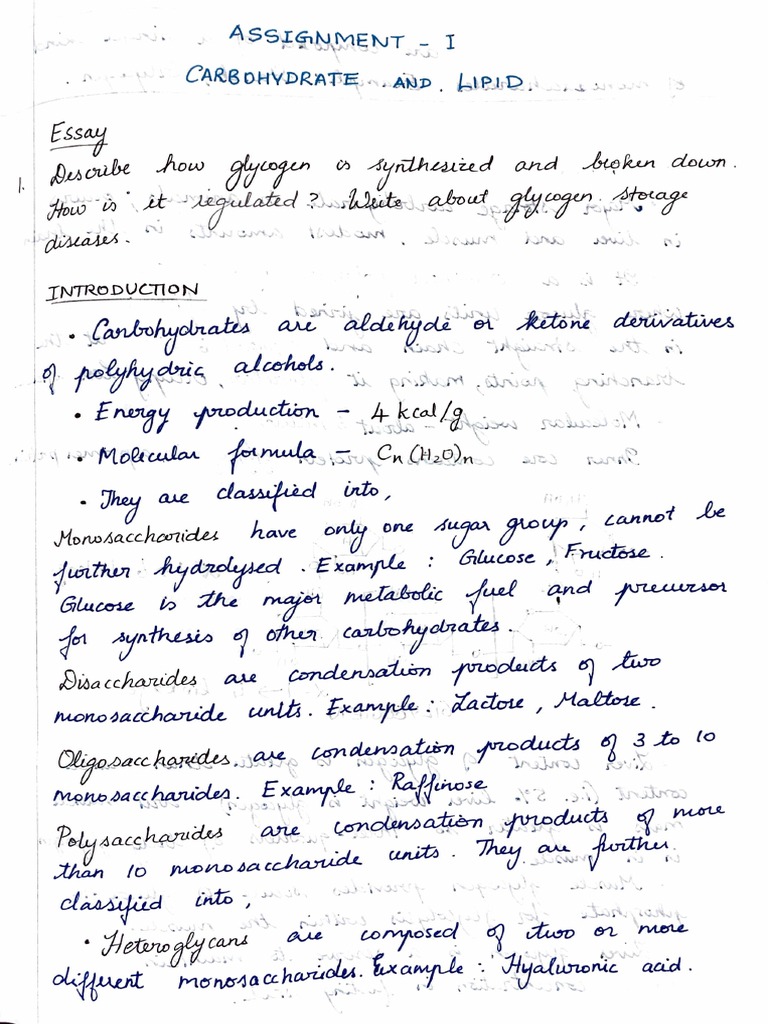 ASSIGNMENT - I
CARBOHYDRATE AND LIPID
Essay
1. Describe how glycogen is synthesized and broken down.
How is it regulated? Write about glycogen storage
diseases.
INTRODUCTION
• Carbohydrates are aldehyde or ketone derivatives
of polyhydric alcohols.
• Energy production - 4 kcal/g
• Molecular formula - Cn(H2O)n
• They are classified into,
Monosaccharides have only one sugar group, cannot be
further hydrolysed. Example : Glucose, Fructose.
Glucose is the major metabolic fuel and precursor
for synthesis of other carbohydrates.
Disaccharides are condensation products of two
monosaccharide units. Example : Lactose, Maltose.
Oligosaccharides are condensation products of 3 to 10
monosaccharides. Example : Raffinose
Polysaccharides are condensation products of more
than 10 monosaccharide units. They are further
classified into,
• Heteroglycans are composed of two or more
different monosaccharides. Example : Hyaluronic acid.